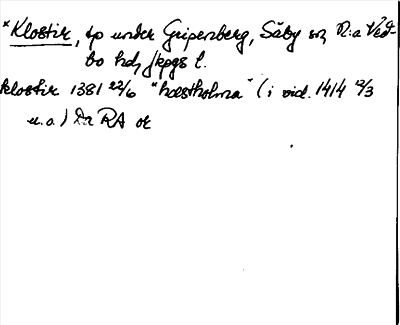 *Klostir, tp under Gripenberg, Säby sn, N:a Ved-
bo hd, Jkpgs l.
klostir 1381 22/6 "hæstholma" (i vid. 1414 12/3
u.o.) Da RA or